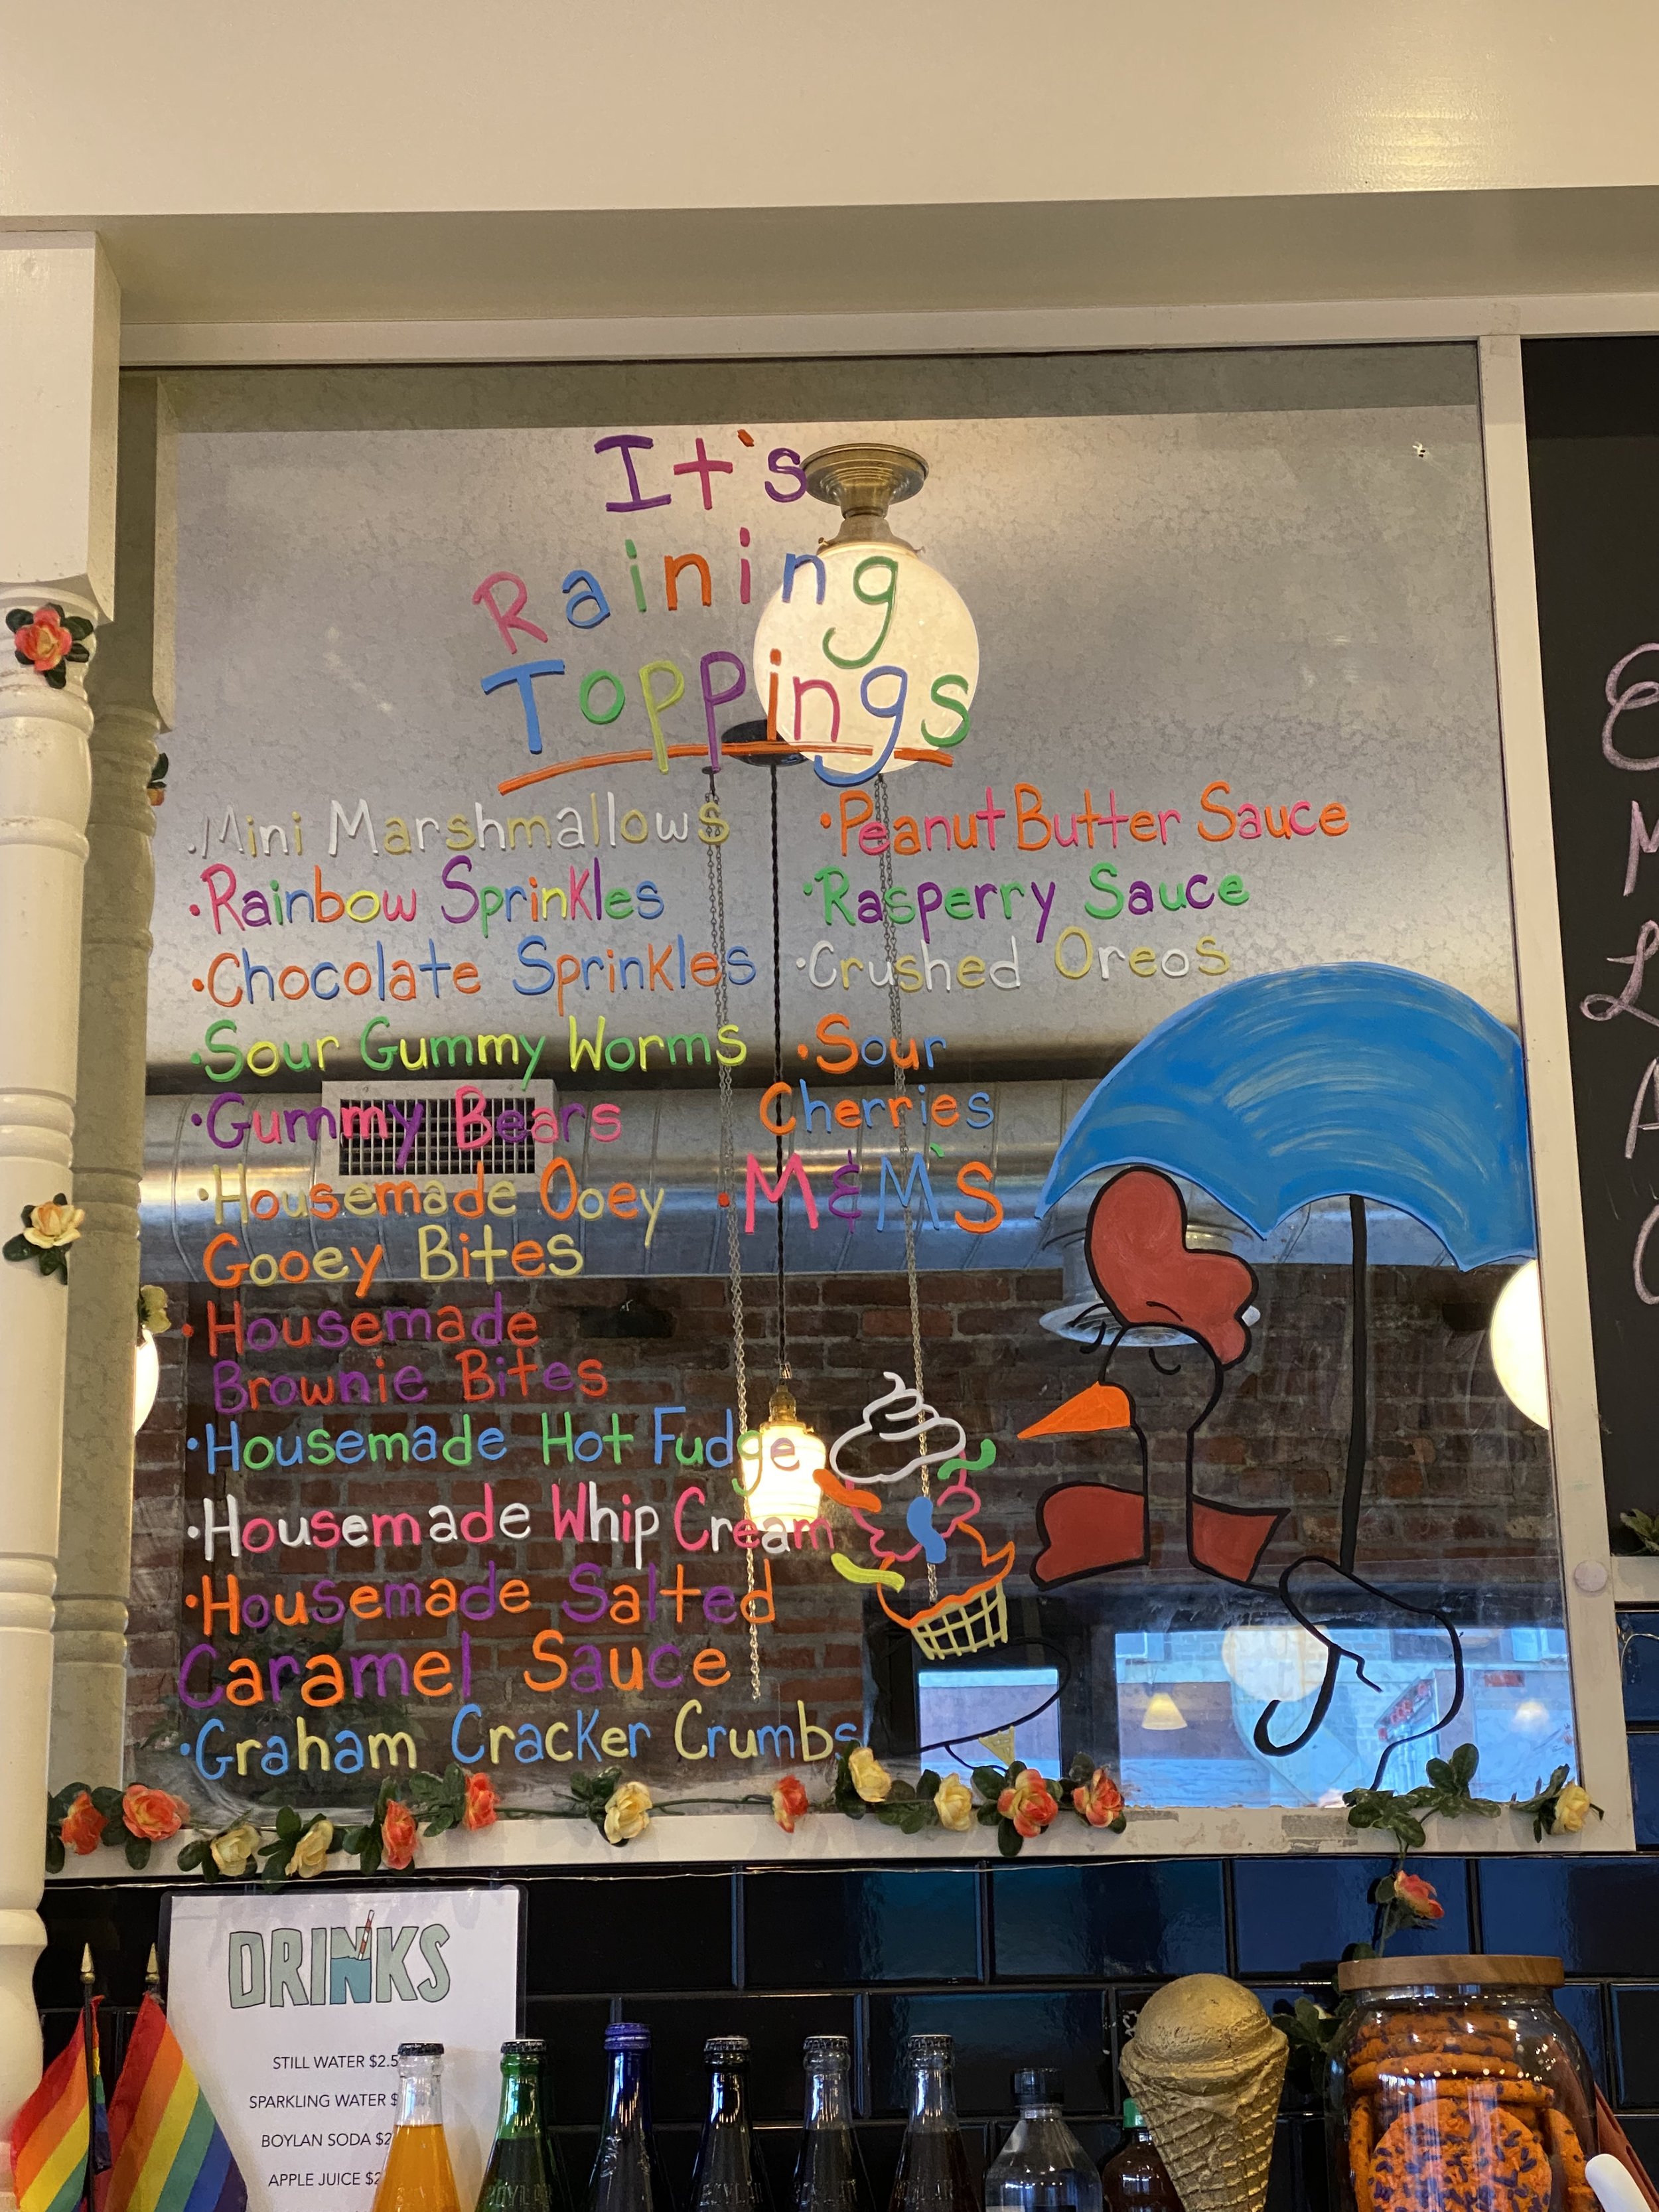 It's
Raining
Toppings
·Mini Marshmallows
·Rainbow Sprinkles
·Chocolate Sprinkles
·Sour Gummy Worms
·Gummy Bears
·Housemade Ooey
Gooey Bites
·Housemade
Brownie Bites
·Housemade Hot Fudge
·Housemade Whip Cream
·Housemade Salted
Caramel Sauce
·Graham Cracker Crumbs
·Peanut Butter Sauce
·Rasperry Sauce
·Crushed Oreos
·Sour
Cherries
·M&M'S
DRINKS
STILL WATER $2.5
SPARKLING WATER $
BOYLAN SODA $2
APPLE JUICE $2